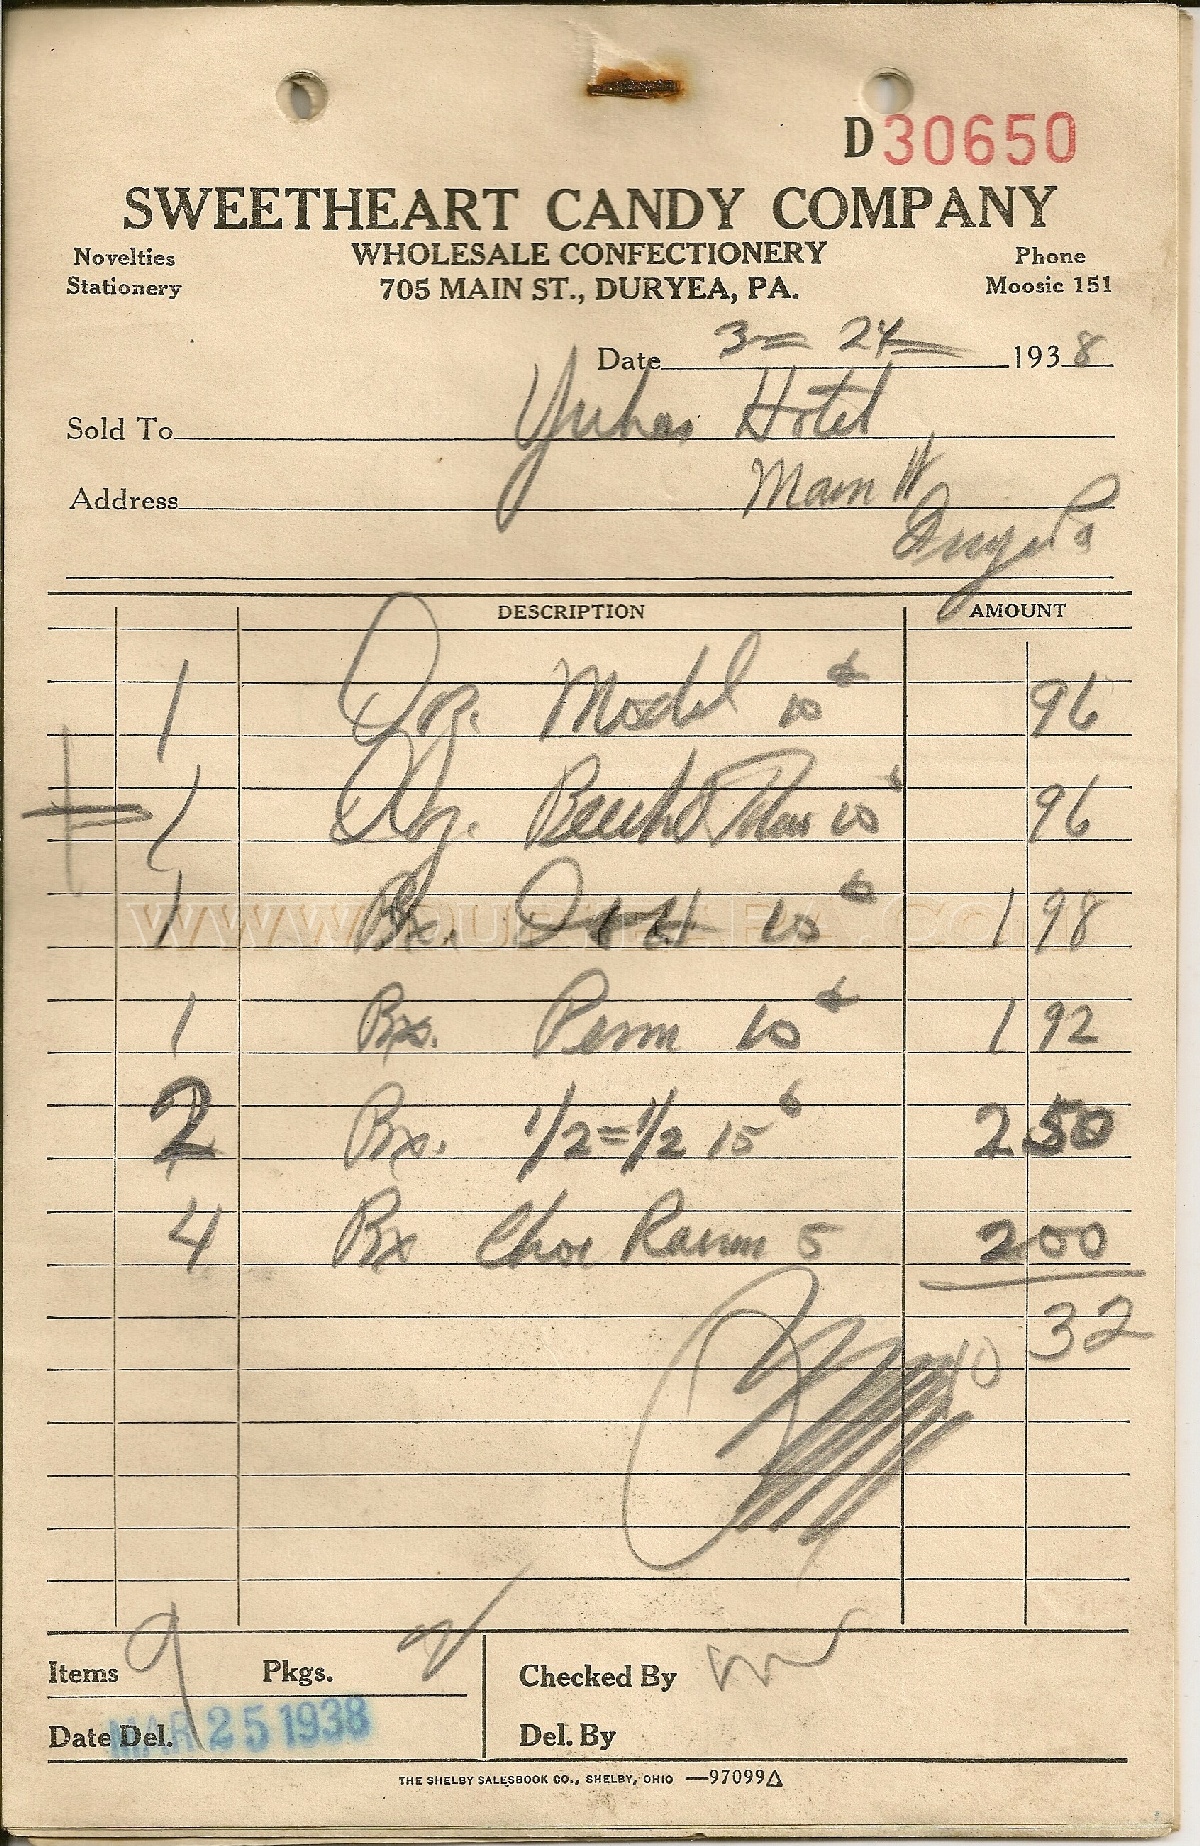 D30650
SWEETHEART CANDY COMPANY
Novelties WHOLESALE CONFECTIONERY Phone
Stationery 705 MAIN ST., DURYEA, PA. Moosic 151
Date 3 - 24 1938
Sold To Yuhas Hotel
Address Main St
Duryea Pa
DESCRIPTION AMOUNT
1 Dz. Model 10¢ 96
1 Dz. Beech 10¢ 96
1 Bx. 10¢ 1 98
1 Bx. Penn 10¢ 1 92
2 Bx. 1/2=1/2 15¢ 2 50
4 Bx Choc 5 2 00
10 32
Items 9 Pkgs.
Checked By
Date Del. MAR 25 1938
Del. By
THE SHELBY SALESBOOK CO., SHELBY, OHIO —97099△